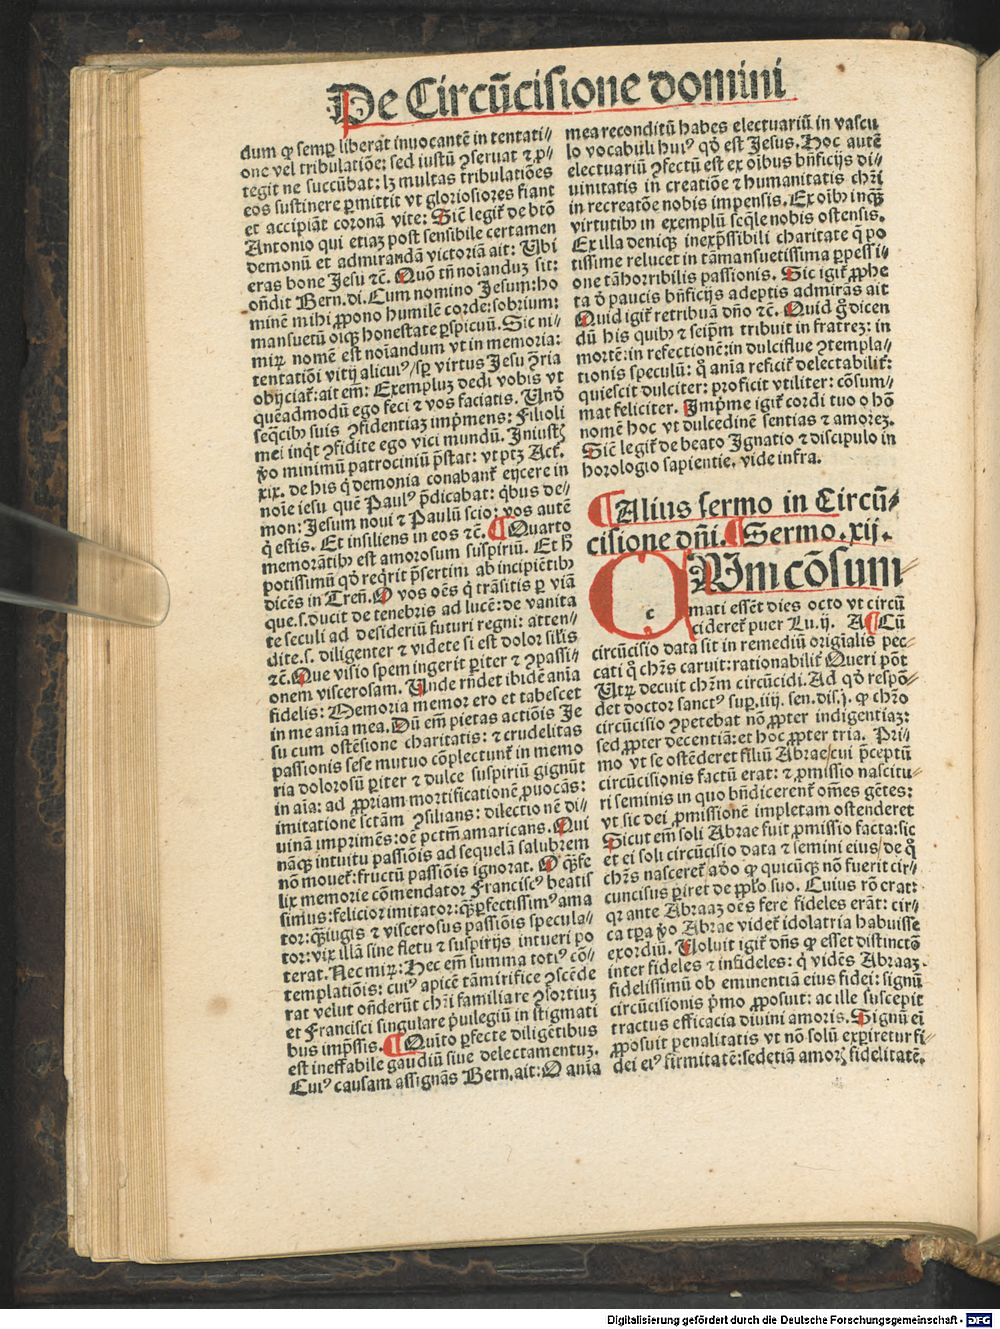 De Circũcisione domini
dum qꝫ semꝑ liberat inuocantẽ in tentati⸗
one vel tribulatiõe: sed iustũ ꝯseruat ⁊ ꝓ⸗
tegit ne succũbat: lꝫ multas tribulatiões
eos sustinere ꝑmittit vt gloriosiores fiant
et accipiãt coronã vite: Sicẽ legit̃ de btõ
Antonio qui etiaꝫ post sensibile certamen
demonũ et admirandã victoriã ait: Vbi
eras bone Jesu ⁊cẽ. Quõ tñ noĩanduꝫ sit:
oñdit Bern. di. Cum nomino Jesum: ho
minẽ mihi ꝓpono humilẽ corde: sobrium:
mansuetũ oĩqꝫ honestate ꝑspicuũ. Sic ni⸗
mirꝫ nomẽ est noĩandum vt in memoria:
tentatiõi vitij alicuiꝰ/ sꝑ virtus Jesu ꝯ̃ria
obijciat̃: ait em̃: Exempluꝫ dedi vobis vt
quẽadmodũ ego feci ⁊ vos faciatis. Vnõ
seq̃cibꝰ suis ꝯfidentiaꝫ imp̃mens: Filioli
mei inqͥt ꝯfidite ego vici mundũ. Jniustꝫ
ꝟo minimũ patrociniũ p̃stat: vt ptꝫ Act̃.
xix. de his qͥ demonia conabant̃ eijcere in
noĩe iesu quẽ Paulꝰ p̃dicabat: qͥbus de⸗
mon: Jesum noui ⁊ Paulũ scio: vos autẽ
qͥ estis. Et insiliens in eos ⁊cẽ. ¶ Quarto
memorãtibꝰ est amorosum suspiriũ. Et h̃
potissimũ qõ reqͥrit p̃sertini ab incipiẽtibꝰ
dicẽs in Tren̄. O vos oẽs qͥ trãsitis ꝑ viã
que .s. ducit de tenebris ad lucẽ: de vanita
te seculi ad desideriũ futuri regni: atten⸗
dite .s. diligenter ⁊ videte si est dolor sil̃is
⁊cẽ. Que visio spem ingerit ꝑiter ⁊ ꝯpassi⸗
onem viscerosam. Unde rñdet ibidẽ anĩa
fidelis: Memoria memor ero et tabescet
in me anĩa mea. Dũ em̃ pietas actiõis Je
su cum ostẽsione charitatis: ⁊ crudelitas
passionis sese mutuo cõplectunt̃ in memo
ria dolorosũ ꝑiter ⁊ dulce suspiriũ gignũt
in aĩa: ad ꝓpriam mortificationẽ ꝓuocãs:
imitatione sctãm ꝯsilians: dilectionẽ di⸗
uinã imprimẽs: oẽ pctm̃ amaricans. Qui
nãqꝫ intuitu passiõis ad sequelã salubrem
nõ mouet̃: fructũ passiõis ignorat. O qꝫ̃ fe
lix memorie cõmendator Franciscꝰ beatis
simus: felicior imitator: qꝫ̃ ꝑfectissimꝰ ama
tor: qꝫ̃ iugis ⁊ viscerosus passiõis specula⸗
tor: vix illã sine fletu ⁊ suspirijs intueri po
terat. Nec mirꝫ: Hec em̃ summa totiꝰ cõ⸗
templatiõis: cuiꝰ apicẽ tã mirifice ꝯscẽde
rat velut oñderũt chr̃i familiare ꝯsortiuꝫ
et Francisci singulare p̃uilegiũ in stigmati
bus imp̃ssis. ¶ Quĩto ꝑfecte diligẽtibus
est ineffabile gaudiũ siue delectamentuꝫ.
Cuiꝰ causam assignãs Bern. ait: O anĩa
mea reconditũ habes electuariũ in vascu
lo vocabuli huiꝰ qõ est Jesus. Hoc autẽ
electuariũ ꝯfectũ est ex oĩbus bñficijs di⸗
uinitatis in creatiõe ⁊ humanitatis chr̃i
in recreatõe nobis impensis. Ex oĩbꝰ inqꝫ̃
virtutibꝰ in exemplũ seq̃le nobis ostensis.
Ex illa deniqꝫ inexp̃ssibili charitate q̃ po
tissime relucet in tã mansuetissima ꝑpessi⸗
one tã horribilis passionis. Sic igit̃ ꝓphe
ta õ paucis bñficijs adeptis admirãs ait
Quid igit̃ retribuã dño ⁊cẽ. Quid gͦ dicen
dũ his quibꝰ ⁊ seip̃m tribuit in fratreꝫ: in
mortẽ: in refectionẽ: in dulcifluе ꝯtempla⸗
tionis speculũ: qͦ anĩa reficit̃ delectabilit̃:
quiescit dulciter: proficit vtiliter: cõsum⸗
mat feliciter. Jmp̃me igit̃ cordi tuo o hõ
nomẽ hoc vt dulcedinẽ sentias ⁊ amoreꝫ.
Sicẽ legit̃ de beato Jgnatio ⁊ discipulo in
horologio sapientie. vide infra.
¶ Alius sermo in Circũ⸗
cisione dñi. ¶ Sermo .xij.
OVm cõsum⸗
mati essẽt dies octo vt circũ
cideret̃ puer Lu. ij. A ¶ Cũ
circũcisio data sit in remediũ originalis pec⸗
cati qͦ chr̃s caruit: rationabilit̃ Queri põt
Utrꝫ decuit chr̃m circũcidi. Ad qõ respõ⸗
det doctor sanctꝰ suꝑ .iiij. sen. dis. j. ꝙ chr̃o
circũcisio ꝯpetebat nõ ꝓpter indigentiaꝫ:
sed ꝓpter decentiã: et hoc ꝓpter tria. Pri⸗
mo vt se ostẽderet filiũ Abrae/ cui p̃ceptũ
circũcisionis factũ erat: ⁊ ꝓmissio nascitu⸗
ri seminis in quo bñdicerent̃ om̃es gẽtes:
vt sic dei ꝓmissionẽ impletam ostenderet
Sicut em̃ soli Abrae fuit ꝓmissio facta: sic
et ei soli circũcisio data ⁊ semini eius/ de qͦ
chr̃s nasceret̃ adõo ꝙ quicũqꝫ nõ fuerit cir⸗
cuncisus ꝑiret de ppl̃o suo. Cuius rõ erat:
qꝛ ante Abraaꝫ oẽs fere fideles erãt: cir⸗
ca tp̃a ꝟo Abrae videt̃ idolatria habuisse
exordiũ. Uoluit igit̃ dñs ꝙ esset distinctõ
inter fideles ⁊ infideles: qͥ vidẽs Abraaꝫ
fidelissimũ ob eminentiã eius fidei: signũ
circũcisionis p̃mo ꝓposuit: ac ille suscepit
tractus efficacia diuini amoris. Signũ ei
ꝓposuit penalitatis vt nõ solũ exꝑiretur fi⸗
dei eiꝰ firmitatẽ: sed etiã amoꝛꝫ fidelitatẽ.
Digitalisierung gefördert durch die Deutsche Forschungsgemeinschaft - DFG